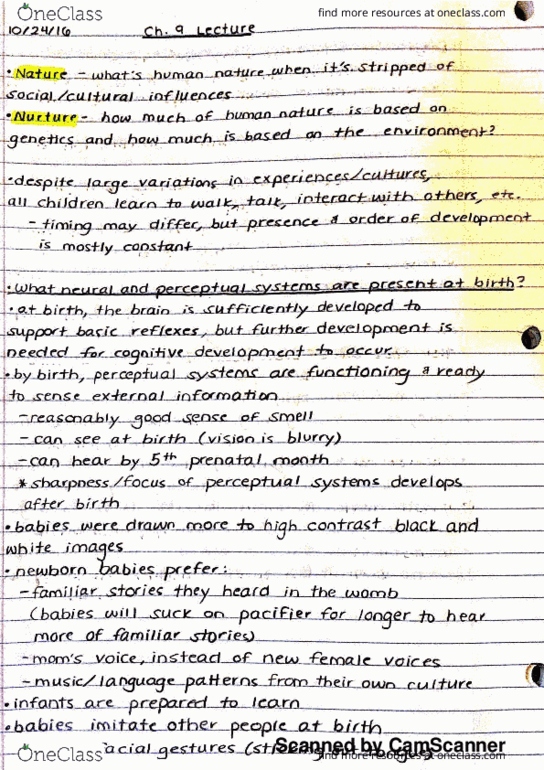 OneClass
find more resources at oneclass.com
10/24/16 Ch. 9 Lecture
• Nature - what's human nature when it's stripped of
social/cultural influences
• Nurture - how much of human nature is based on
genetics and how much is based on the environment?
• despite large variations in experiences/cultures,
all children learn to walk, talk, interact with others, etc.
- timing may differ, but presence & order of development
is mostly constant
• what neural and perceptual systems are present at birth?
• at birth, the brain is sufficiently developed to
support basic reflexes, but further development is
needed for cognitive development to occur
• by birth, perceptual systems are functioning & ready
to sense external information
- reasonably good sense of smell
- can see at birth (vision is blurry)
- can hear by 5th prenatal month
* sharpness/focus of perceptual systems develops
after birth
• babies were drawn more to high contrast black and
white images
• newborn babies prefer:
- familiar stories they heard in the womb
(babies will suck on pacifier for longer to hear
more of familiar stories)
- mom's voice, instead of new female voices
- music/language patterns from their own culture
• infants are prepared to learn
• babies imitate other people at birth
acial gestures
Scanned by CamScanner
OneClass
find more resources at oneclass.com